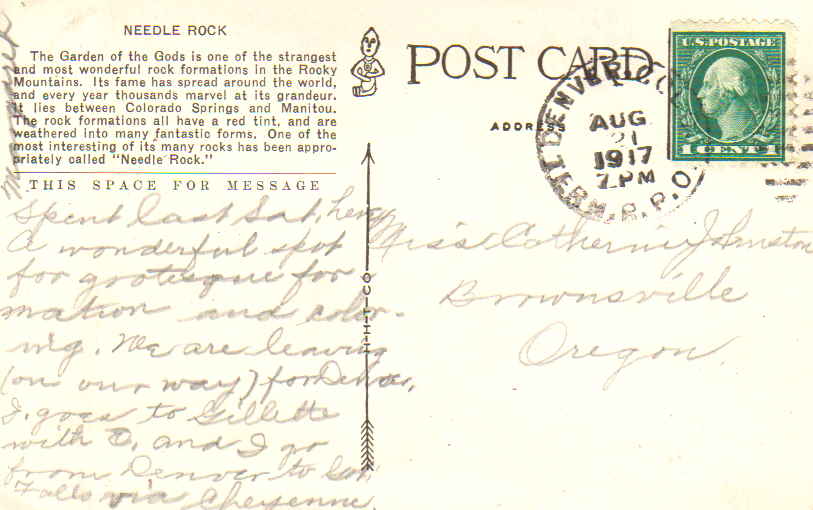 NEEDLE ROCK
The Garden of the Gods is one of the strangest
and most wonderful rock formations in the Rocky
Mountains. Its fame has spread around the world,
and every year thousands marvel at its grandeur.
It lies between Colorado Springs and Manitou.
The rock formations all have a red tint, and are
weathered into many fantastic forms. One of the
most interesting of its many rocks has been appro-
priately called "Needle Rock."
THIS SPACE FOR MESSAGE
Spent last Sat. here
A wonderful spot
for grotesque for
mation and color-
ing. We are leaving
(on our way) for
J. goes to Gillette
with C, and I go
from Denver to
Falls via Cheyenne.
H-H-T-CO
POST CARD
ADDRESS
DENVER, COLO
AUG
21
1917
7 PM
TERM. R.P.O.
U.S. POSTAGE
1 CENT 1
Miss Catherine Johnston
Brownsville
Oregon.